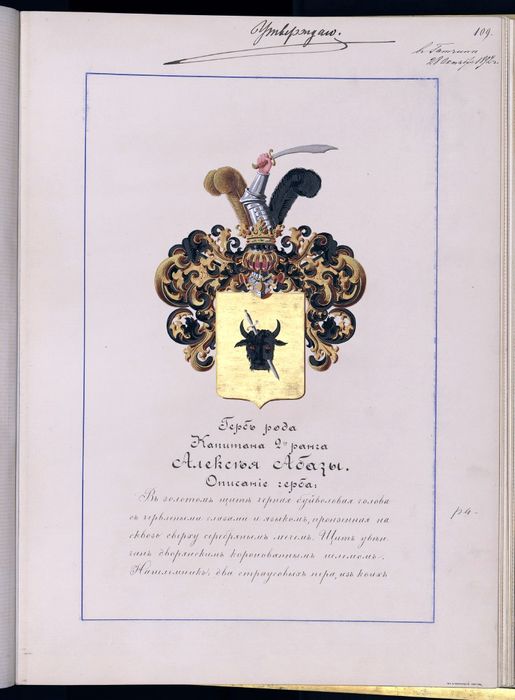 Утверждаю.
109.
въ Гатчинѣ
28 Октября
Гербъ рода
Капитана 2го ранга
Алексѣя Абазы.
Описаніе герба:
Въ золотомъ щитѣ черная буйволовая голова
съ червлеными глазами и языкомъ, пронзенная на
сквозь сверху серебрянымъ мечемъ. Щитъ увѣн
чанъ дворянскимъ коронованнымъ шлемомъ.
Нашлемникъ: два страусовыхъ пера, изъ коихъ